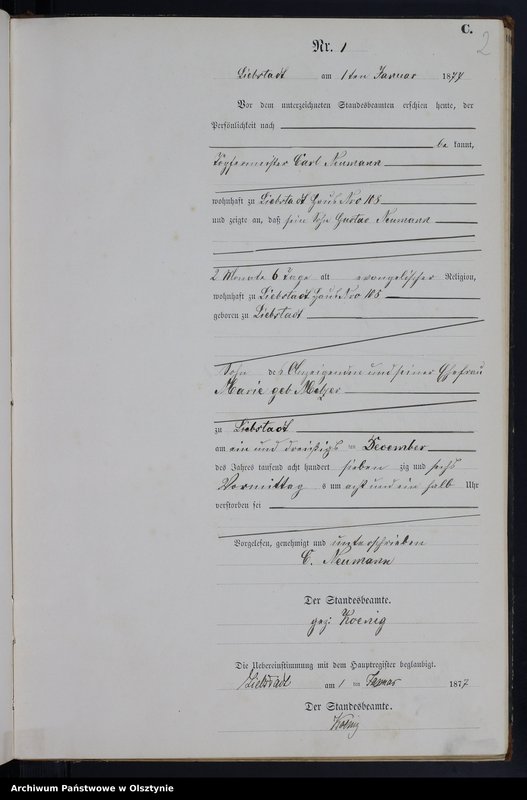 C.
2
Nr. 1
Liebstadt am 1ten Januar 1877
Vor dem unterzeichneten Standesbeamten erschien heute, der
Persönlichkeit nach
be kannt,
Töpfermeister Carl Neumann
wohnhaft zu Liebstadt Haus Nro 105
und zeigte an, daß sein Sohn Gustav Neumann
2 Monate 6 Tage alt evangelischer Religion,
wohnhaft zu Liebstadt Haus Nro 105
geboren zu Liebstadt
Sohn des Anzeigenden und seiner Ehefrau
Marie geb.
zu Liebstadt
am ein und dreißigs ten December
des Jahres tausend acht hundert sieben zig und sechs
Vormittags um acht und ein halb Uhr
verstorben sei
Vorgelesen, genehmigt und unterschrieben
C. Neumann
Der Standesbeamte.
gez: Koenig
Die Uebereinstimmung mit dem Hauptregister beglaubigt.
Liebstadt am 1 ten Januar 1877
Der Standesbeamte.
Koenig
Archiwum Państwowe w Olsztynie